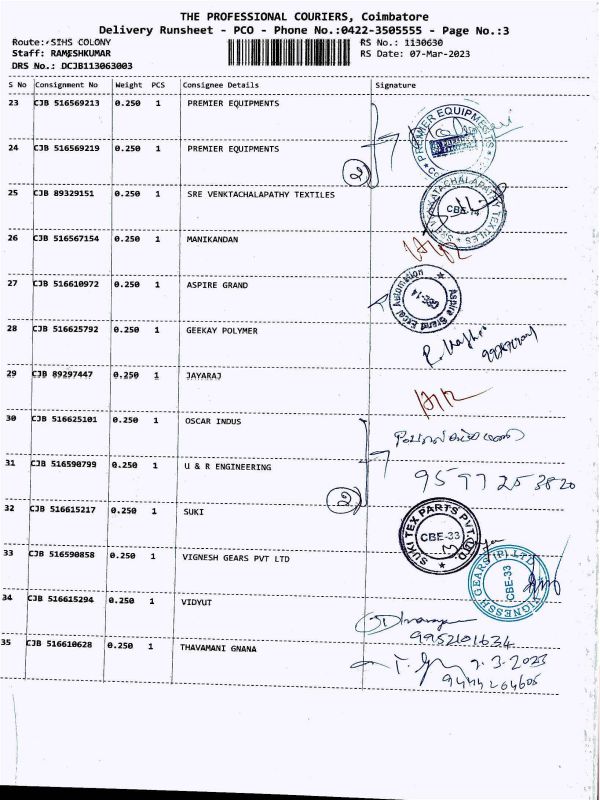 THE PROFESSIONAL COURIERS, Coimbatore
Delivery Runsheet - PCO - Phone No.:0422-3505555 - Page No.:3
Route: SIHS COLONY
RS No.: 1130630
Staff: RAMESHKUMAR
RS Date: 07-Mar-2023
DRS No.: DCJB113063003
S No Consignment No Weight PCS Consignee Details Signature
23 CJB 516569213 0.250 1 PREMIER EQUIPMENTS
PREMIER EQUIPMENTS
24 CJB 516569219 0.250 1 PREMIER EQUIPMENTS
2
25 CJB 89329151 0.250 1 SRE VENKTACHALAPATHY TEXTILES
SRI VENKATACHALAPATHY TEXTILES
CBE-14
26 CJB 516567154 0.250 1 MANIKANDAN
27 CJB 516610972 0.250 1 ASPIRE GRAND
Aspire Grand Excel Automation
CBE-14
28 CJB 516625792 0.250 1 GEEKAY POLYMER
29 CJB 89297447 0.250 1 JAYARAJ
30 CJB 516625101 0.250 1 OSCAR INDUS
31 CJB 516590799 0.250 1 U & R ENGINEERING
9597253820
2
32 CJB 516615217 0.250 1 SUKI
SUKI TEX PARTS PVT LTD
CBE-33
33 CJB 516590858 0.250 1 VIGNESH GEARS PVT LTD
VIGNESSH GEARS (P) LTD
CBE-33
34 CJB 516615294 0.250 1 VIDYUT
9952101634
35 CJB 516610628 0.250 1 THAVAMANI GNANA
7.3.2023
9444204605